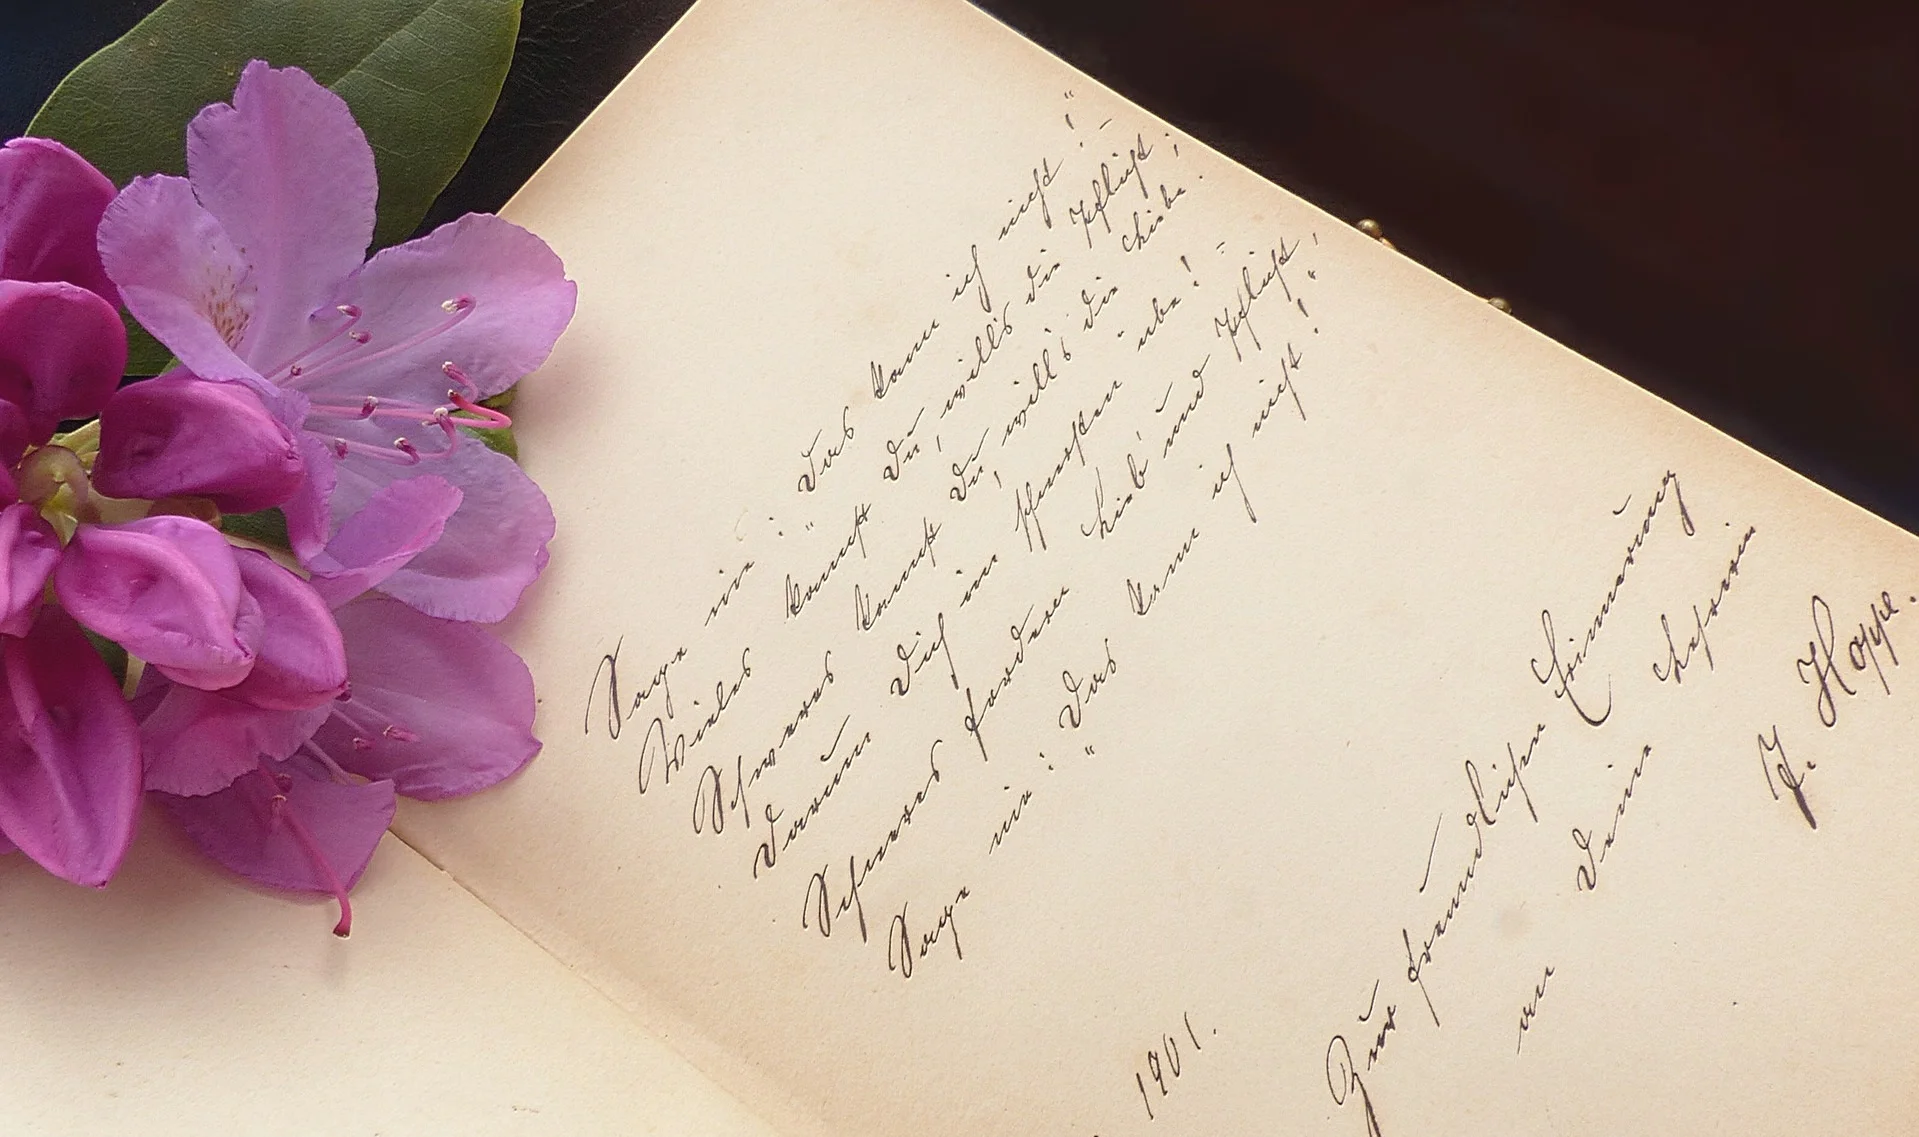 Sage nie: „Das kann ich nicht!“
Vieles kannst Du, will's die Pflicht,
Schweres kannst Du, will's die Liebe.
Darum Dich im Schwersten übe!
Schweres fordern Lieb' und Pflicht;
Sage nie: „Das kann ich nicht!“
Zur freundlichen Erinnerung
an Deine Lehrerin
J. Hoppe.
1901.